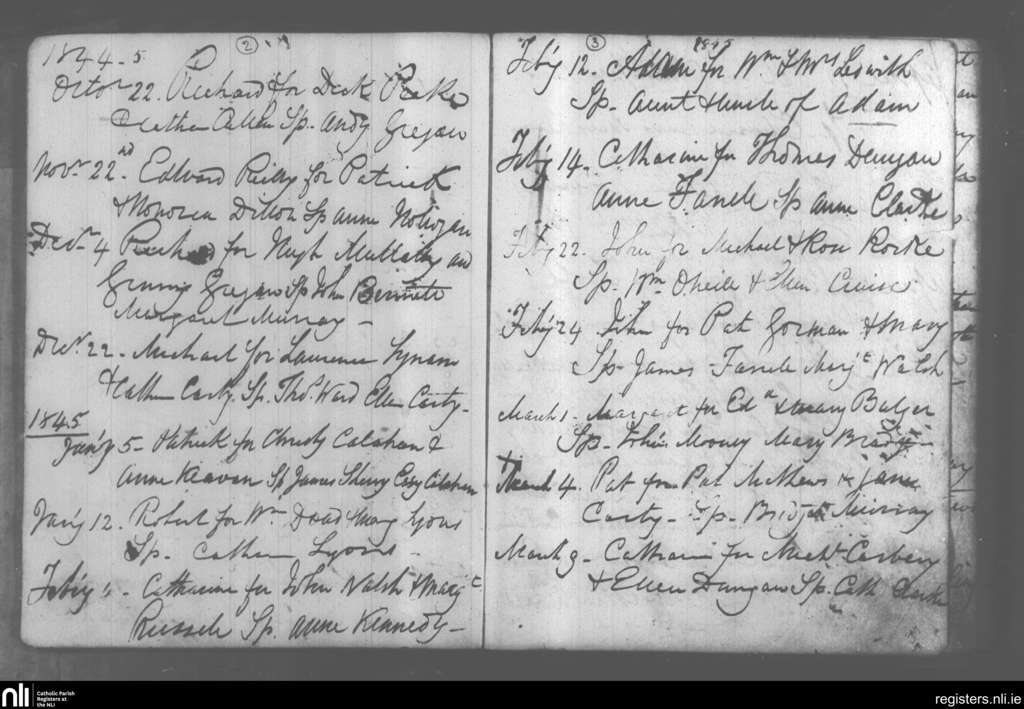 1844-5
2
Octor 22. Richard for Dick
Cathn Sp. Andy Gregan
Novr 22nd. Edward Reilly for Patrick
& Honorea Dillon Sp Anne
Decr 4 Richard for Hugh Mullally and
Gregan Sp John Bennett
Margaret Murray -
Decr. 22 - Michael for Laurence Lynam
& Cathn Carty Sp. Thos. Ward Ellen Carty -
1845
Jan'y 5 - Patrick for Christy Calahan &
Anne Keavan Sp James Sherry Calahan
Jan'y 12. Robert for Wm Dowd & Mary Lyons
Sp. Cathn Lyons -
Feb'y - Catharine for John Walsh & Marg't
Russell Sp. Anne Kennedy -
3
1845
Feb'y 12. Adam for Wm & Ledwith
Sp. Aunt & Uncle of Adam
Feb'y 14. Catharine for Thomas Denygan
Anne Farrell Sp Anne Clarke
Feb'y 22. John for Michael & Rose Rorke
Sp. Wm. O'Neile & Ellen Cruise
Feb'y 24 John for Pat Gorman & Mary
Sp. James Farrell Marg't Walsh
March 1. Margaret for Ed'd & Mary Balger
Sp. John Mooney Mary Brady -
March 4. Pat for Pat Mathews & Jane
Carty - Sp. Bridget Murray
March 9 - Catharine for Mich'l Carbery
& Ellen Dungan Sp. Cath Clarke
nli
Catholic Parish
Registers at
the NLI
registers.nli.ie